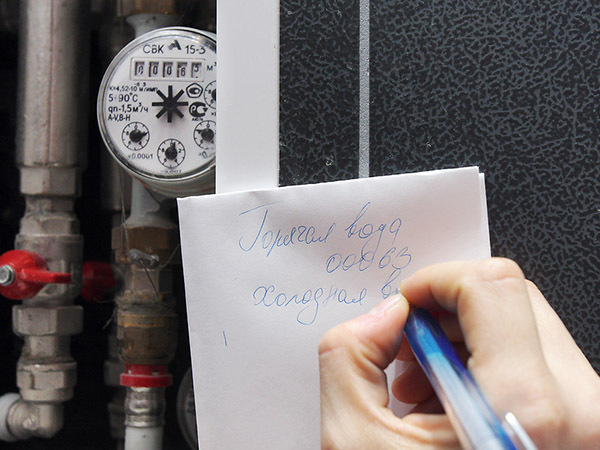 СВК 15-3
00063 м³
5÷90°С
qn-1,5м³/ч
A-V,B-H
×0.0001
Горячая вода
00063
холодная в